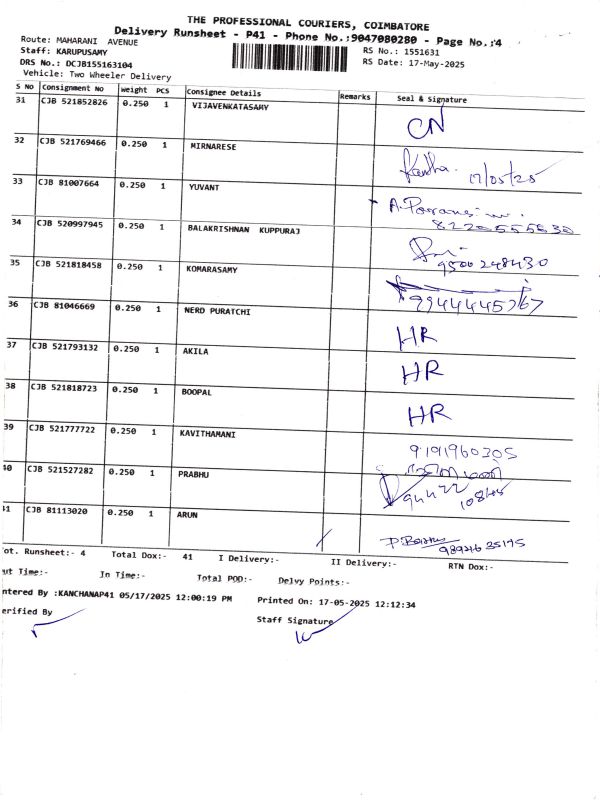 THE PROFESSIONAL COURIERS, COIMBATORE
Delivery Runsheet - P41 - Phone No.:9047080280 - Page No.:4
Route: MAHARANI AVENUE
RS No.: 1551631
Staff: KARUPUSAMY
RS Date: 17-May-2025
DRS No.: DCJB155163104
Vehicle: Two Wheeler Delivery
S No Consignment No Weight PCS Consignee Details Remarks Seal & Signature
31 CJB 521852826 0.250 1 VIJAVENKATASAMY CN
32 CJB 521769466 0.250 1 MIRNARESE 17/05/25
33 CJB 81007664 0.250 1 YUVANT
34 CJB 520997945 0.250 1 BALAKRISHNAN KUPPURAJ 9500248430
35 CJB 521818458 0.250 1 KOMARASAMY 9944445767
36 CJB 81046669 0.250 1 NERD PURATCHI HR
37 CJB 521793132 0.250 1 AKILA HR
38 CJB 521818723 0.250 1 BOOPAL HR
39 CJB 521777722 0.250 1 KAVITHAMANI 9191960305
40 CJB 521527282 0.250 1 PRABHU
41 CJB 81113020 0.250 1 ARUN
ot. Runsheet:- 4 Total Dox:- 41 I Delivery:- II Delivery:- RTN Dox:-
ut Time:- In Time:- Total POD:- Delvy Points:-
ntered By :KANCHANAP41 05/17/2025 12:00:19 PM Printed On: 17-05-2025 12:12:34
erified By Staff Signature